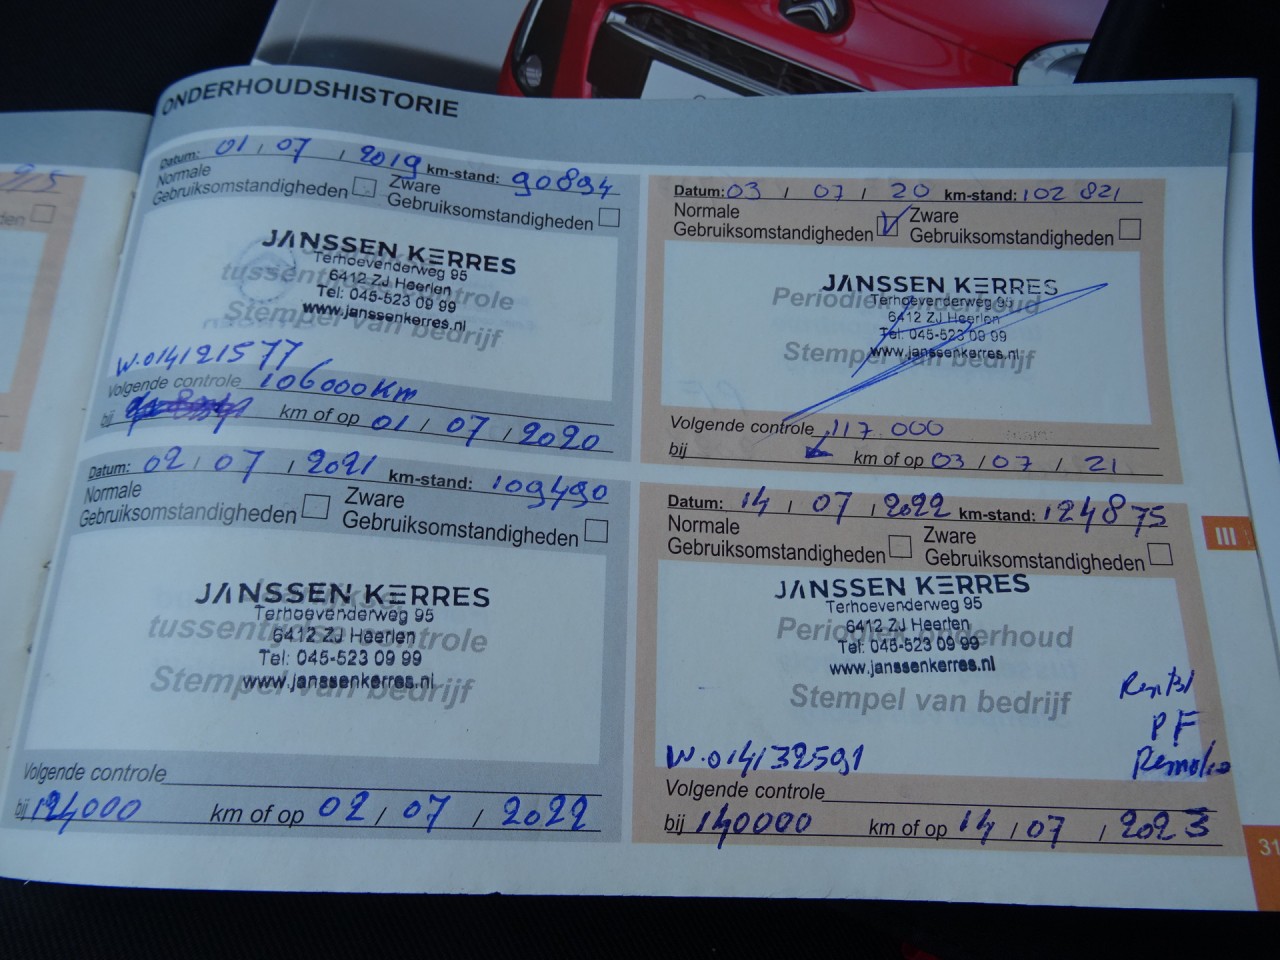 ONDERHOUDSHISTORIE
Datum: 01 / 07 / 2019 km-stand: 90894
Normale
Gebruiksomstandigheden
Zware
Gebruiksomstandigheden
JANSSEN KERRES
Terhoevenderweg 95
6412 ZJ Heerlen
Tel: 045-523 09 99
www.janssenkerres.nl
tussentijdse controle
Stempel van bedrijf
W.014121577
Volgende controle 106000 Km
bij km of op 01 / 07 / 2020
Datum: 03 / 07 / 20 km-stand: 102 821
Normale
Gebruiksomstandigheden
Zware
Gebruiksomstandigheden
JANSSEN KERRES
Terhoevenderweg 95
6412 ZJ Heerlen
Tel: 045-523 09 99
www.janssenkerres.nl
Periodiek onderhoud
Stempel van bedrijf
Volgende controle 117.000
bij km of op 03 / 07 / 21
Datum: 02 / 07 / 2021 km-stand: 109490
Normale
Gebruiksomstandigheden
Zware
Gebruiksomstandigheden
JANSSEN KERRES
Terhoevenderweg 95
6412 ZJ Heerlen
Tel: 045-523 09 99
www.janssenkerres.nl
tussentijdse controle
Stempel van bedrijf
Volgende controle
bij 124000 km of op 02 / 07 / 2022
Datum: 14 / 07 / 2022 km-stand: 124875
Normale
Gebruiksomstandigheden
Zware
Gebruiksomstandigheden
JANSSEN KERRES
Terhoevenderweg 95
6412 ZJ Heerlen
Tel: 045-523 09 99
www.janssenkerres.nl
Periodiek onderhoud
Stempel van bedrijf
PF
W.014132591
Volgende controle
bij 140000 km of op 14 / 07 / 2023
III
31